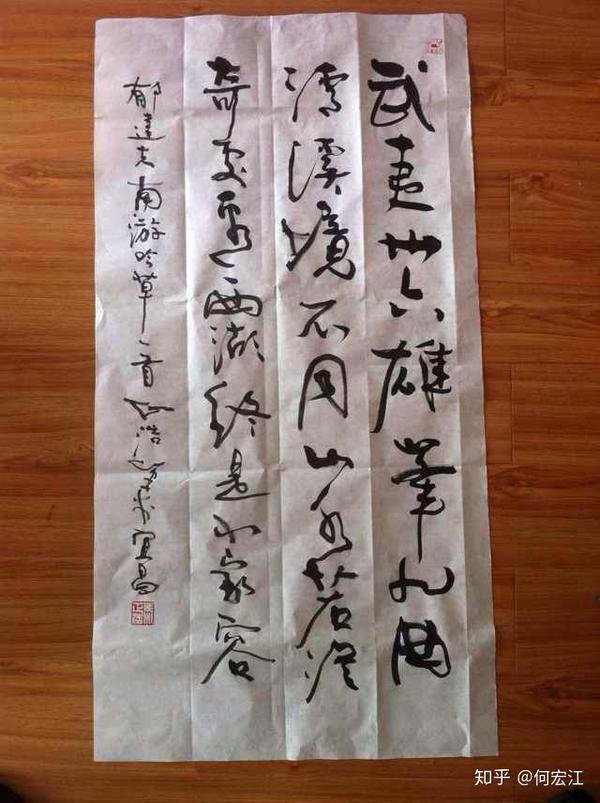 武夷卅六雄峯九曲
清溪境不同山水若從
奇处看西湖終是小家容
郁達夫南游吟草一首 浩 宜昌
知乎 @何宏江